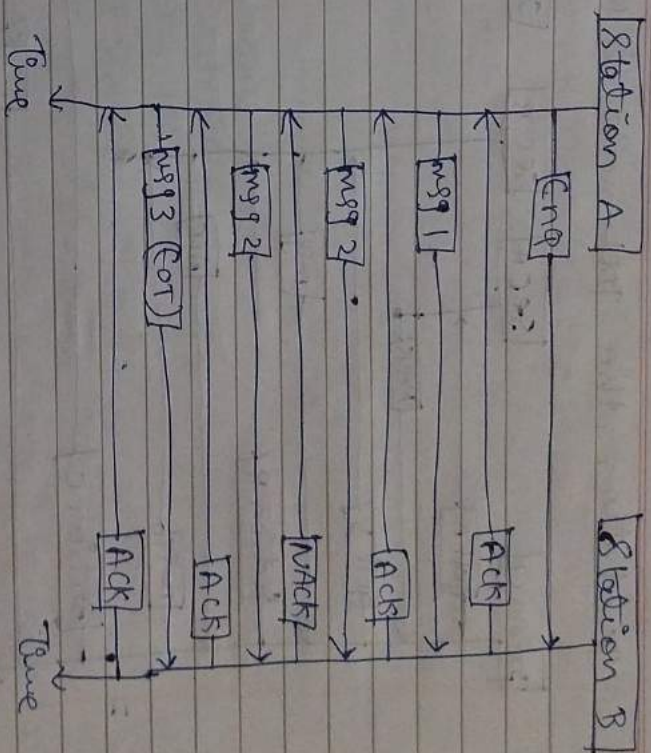 Station A Station B
Enq
Ack
msg 1
Ack
msg 2
NAck
msg 2
Ack
msg 3 (EOT)
Ack
Time Time